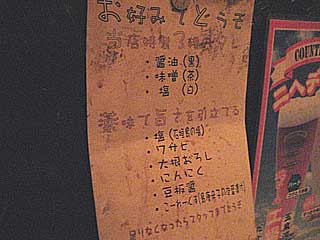 お好みでどうぞ
当店特製3種だし
・醤油(黒)
・味噌(茶)
・塩(白)
薬味で旨さを引立てる
・塩(石垣島の塩)
・ワサビ
・大根おろし
・にんにく
・豆板醤
・こーれーぐす
足りなくなったらスタッフまでどうぞ
COUNT